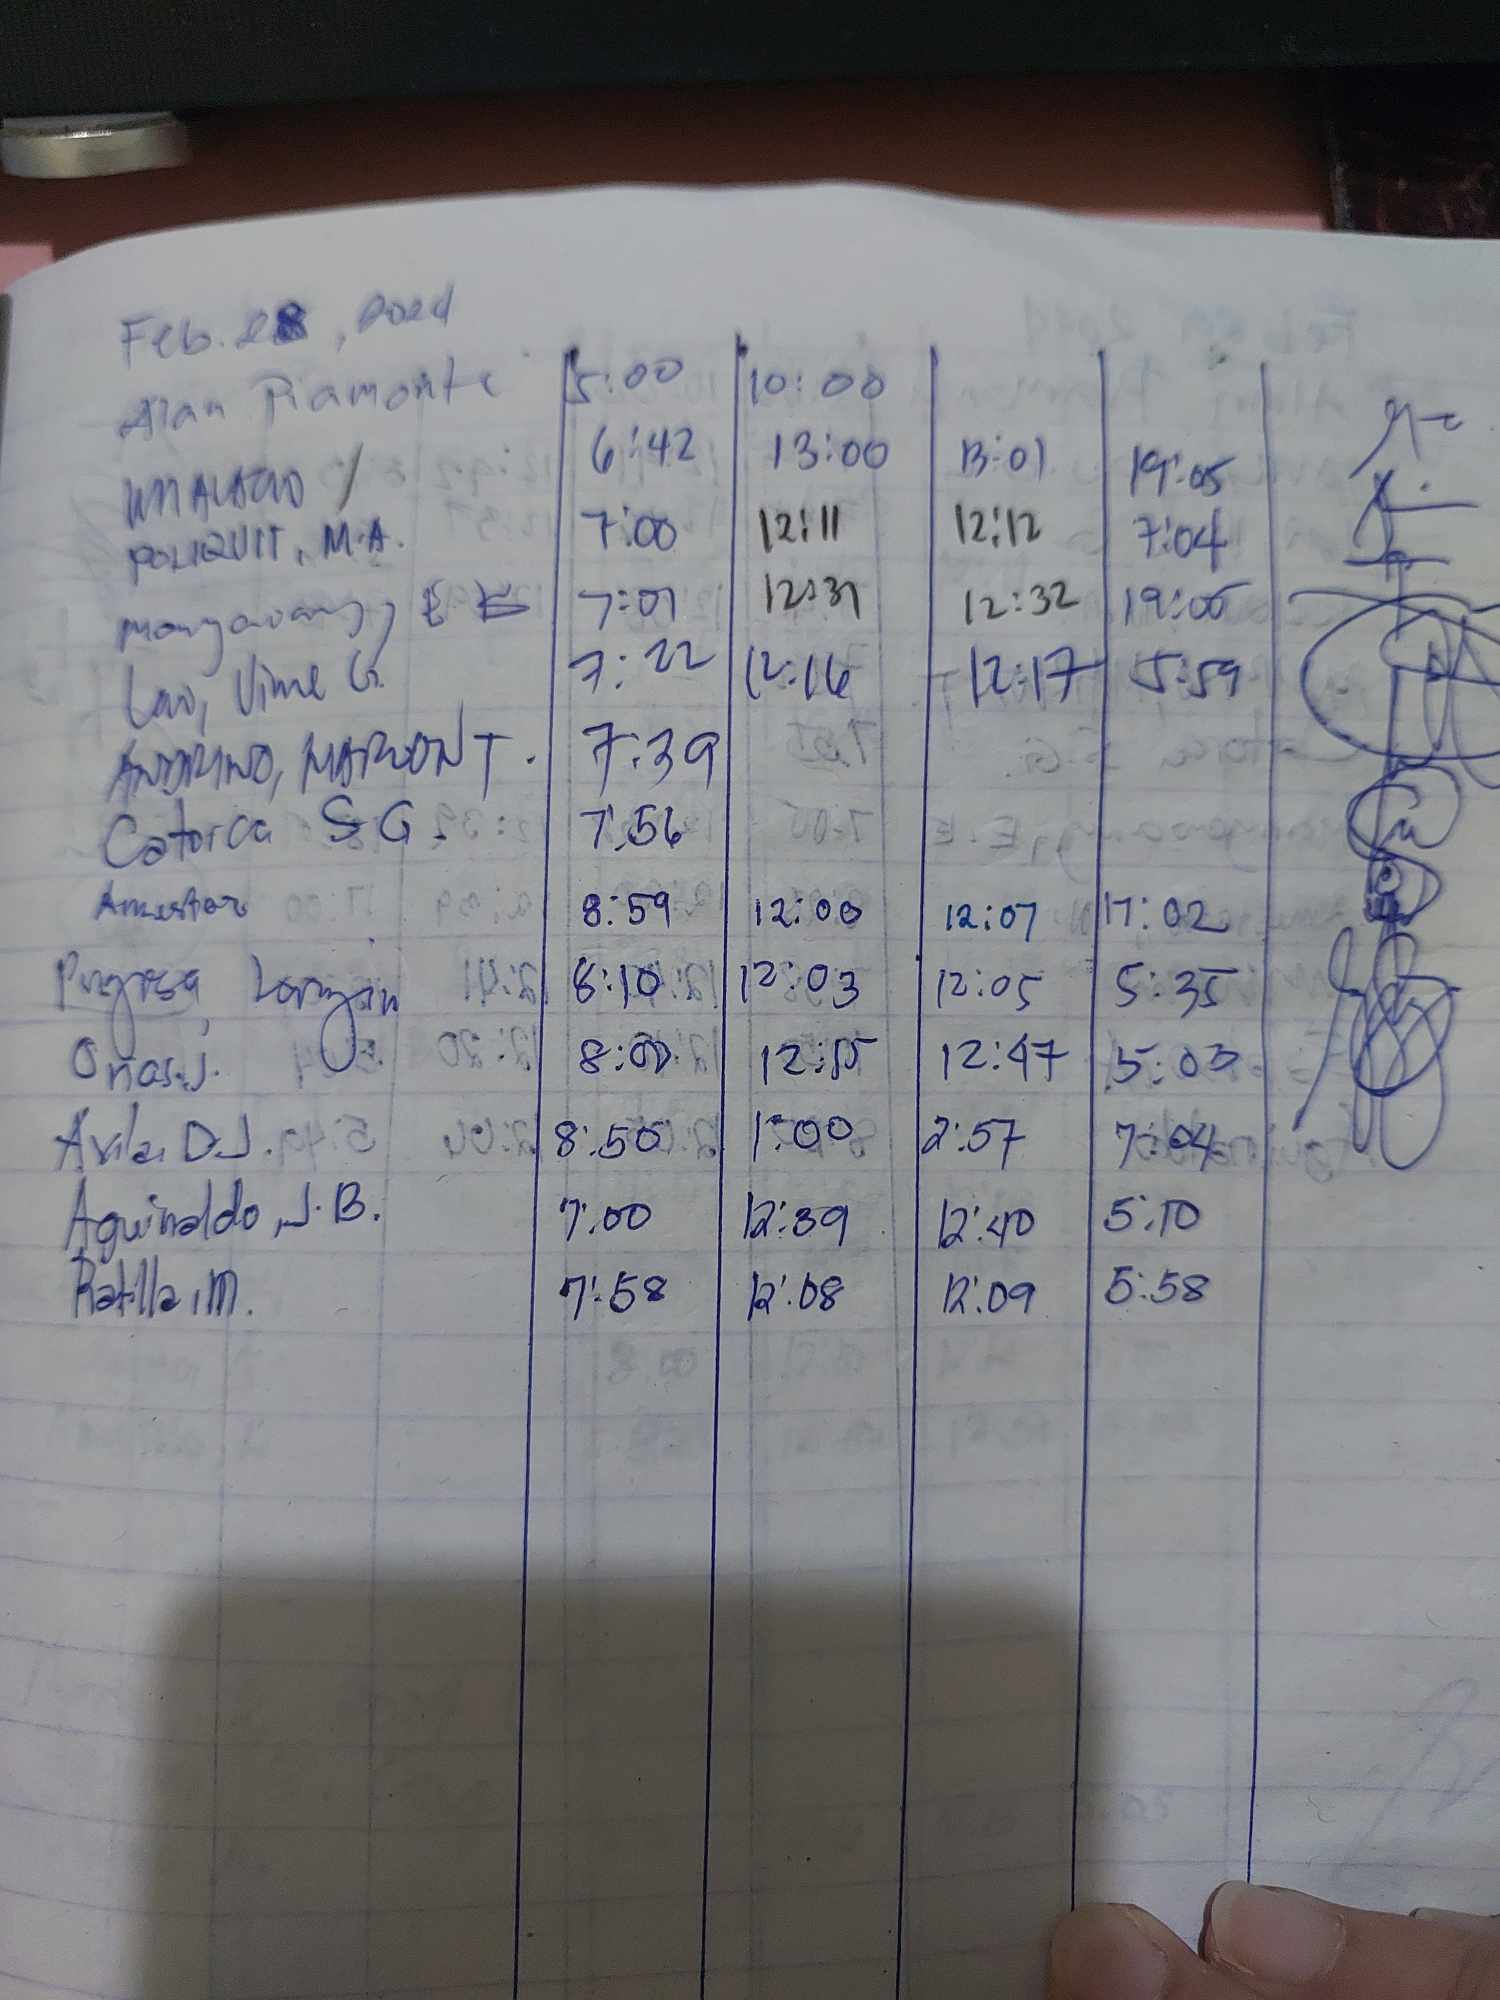 Feb. 28, 2024
Alan Piamonte 5:00 10:00
6:42 13:00 13:01 19:05
POLIQUIT, M.A. 7:00 12:11 12:12 7:04
7:01 12:31 12:32 19:06
Lao, Vime G. 7:22 12:16 12:17 5:59
MARVON T. 7:39
Catorca S G. 7:56
Amestor 8:59 12:00 12:07 17:02
8:10 12:03 12:05 5:35
Onas.J. 8:00 12:15 12:47 5:03
Avila, D.J. 8:50 1:00 2:57 7:04
Aguinaldo, J.B. 7:00 12:39 12:40 5:10
Ratilla, M. 7:58 12:08 12:09 5:58